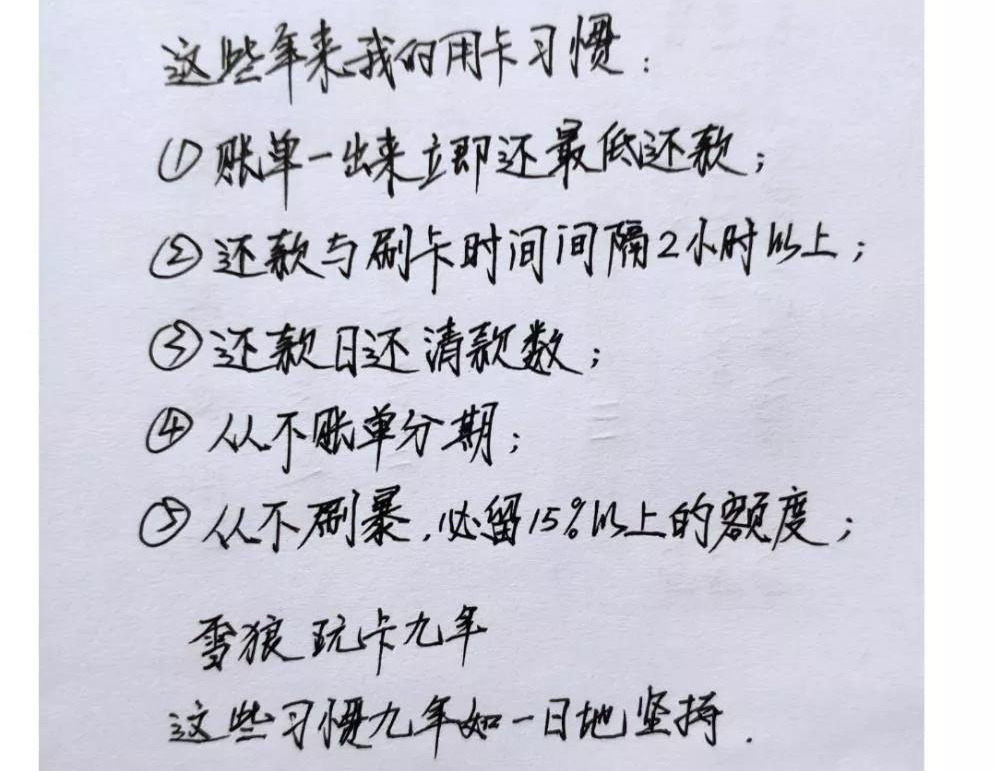 这些年来我的用卡习惯：
①账单一出来立即还最低还款；
②还款与刷卡时间间隔2小时以上；
③还款日还清款数；
④从不账单分期；
⑤从不刷暴，必留15%以上的额度；
雪狼玩卡九年
这些习惯九年如一日地坚持.